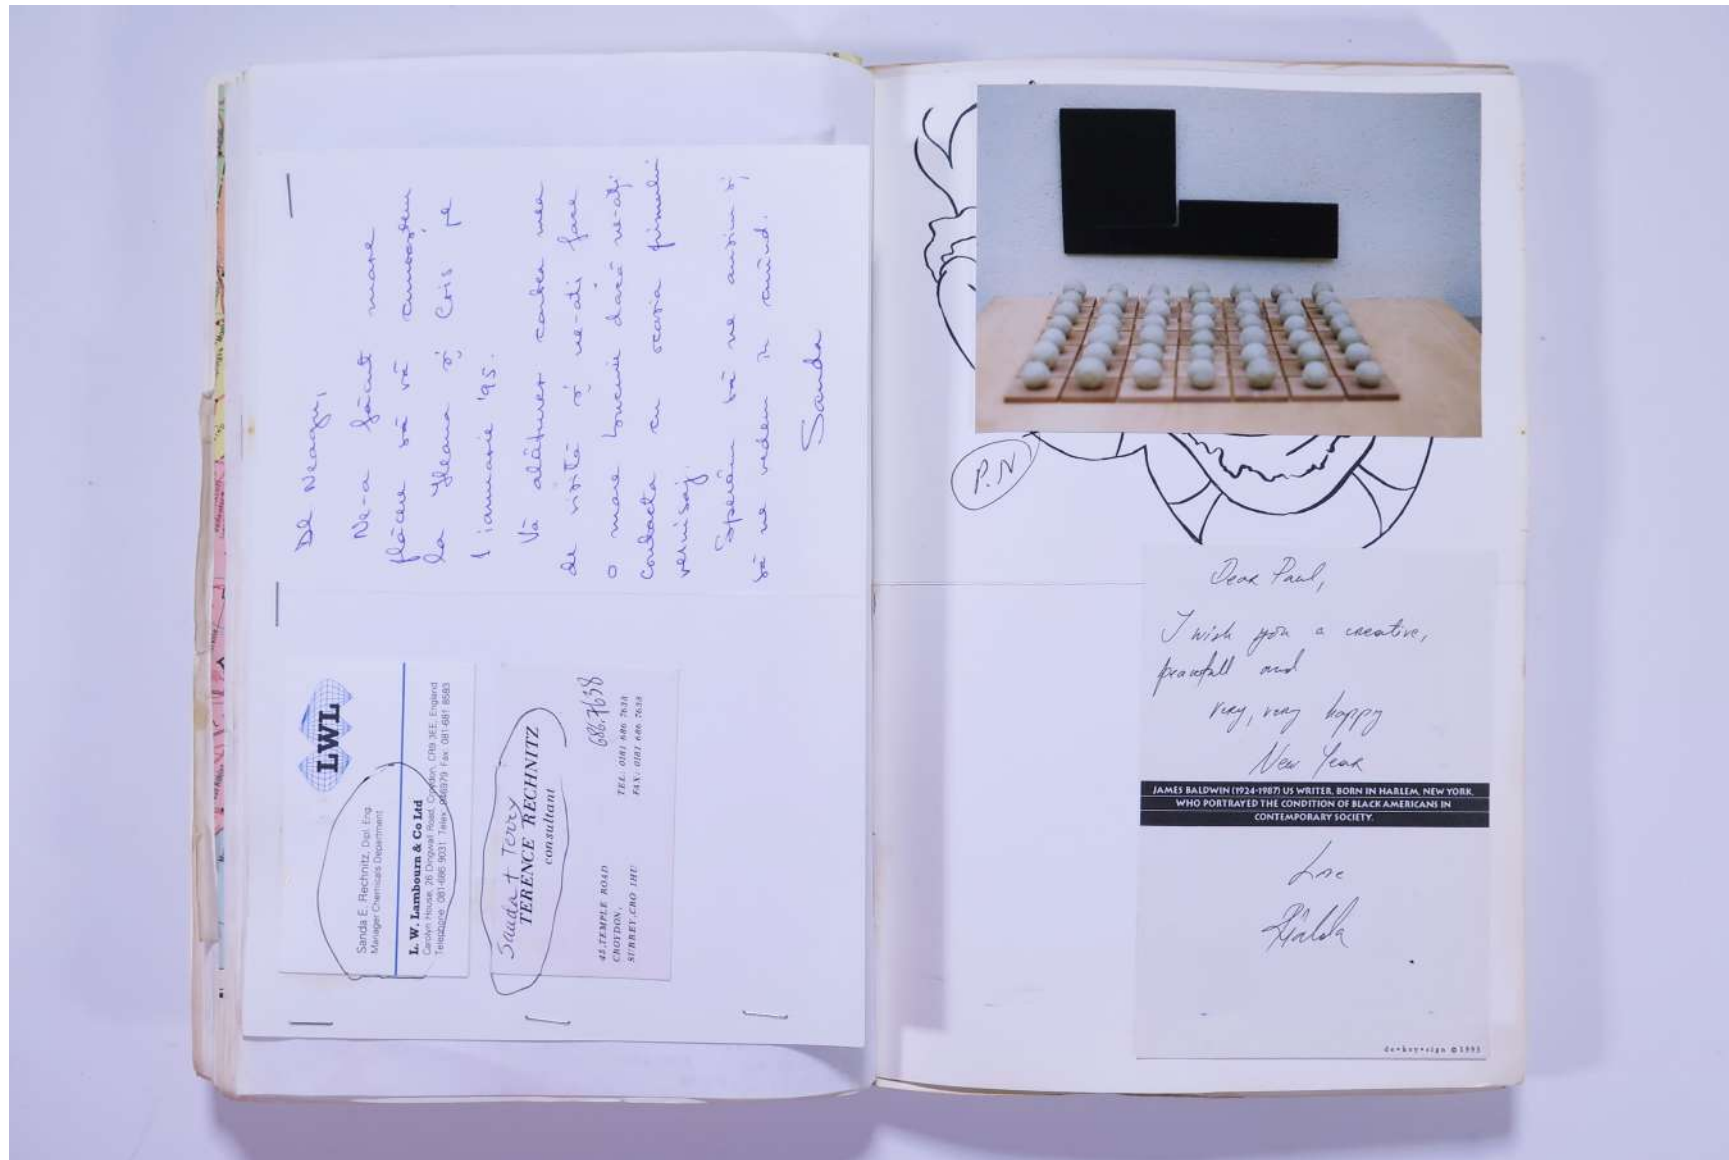 Dl Neagu,
Ne-a făcut mare
plăcere să vă cunoaștem
la Ileana și Cris pe
1 ianuarie '95.
Vă alăturez cartea mea
de visită și ne-ați face
o mare bucurie dacă ne-ați
contacta cu ocazia primului
vernisaj.
Sperăm să ne auzim și
să ne vedem în curînd.
Sanda
LWL
Sanda E. Rechnitz, Dipl. Eng.
Manager Chemicals Department
L. W. Lambourn & Co Ltd
Carolyn House, 26 Dingwall Road, Croydon, CR9 3EE, England
Telephone 081-686 9031 Telex Fax: 081-681 8583
Sanda + Terry
TERENCE RECHNITZ
consultant
686.7638
45, TEMPLE ROAD
CROYDON,
SURREY, CRO 1HU
TEL: 0181 686 7638
FAX: 0181 686 7638
P.N
Dear Paul,
I wish you a creative,
peacefull and
very, very happy
New Year
JAMES BALDWIN (1924-1987) US WRITER, BORN IN HARLEM, NEW YORK,
WHO PORTRAYED THE CONDITION OF BLACK AMERICANS IN
CONTEMPORARY SOCIETY.
Love